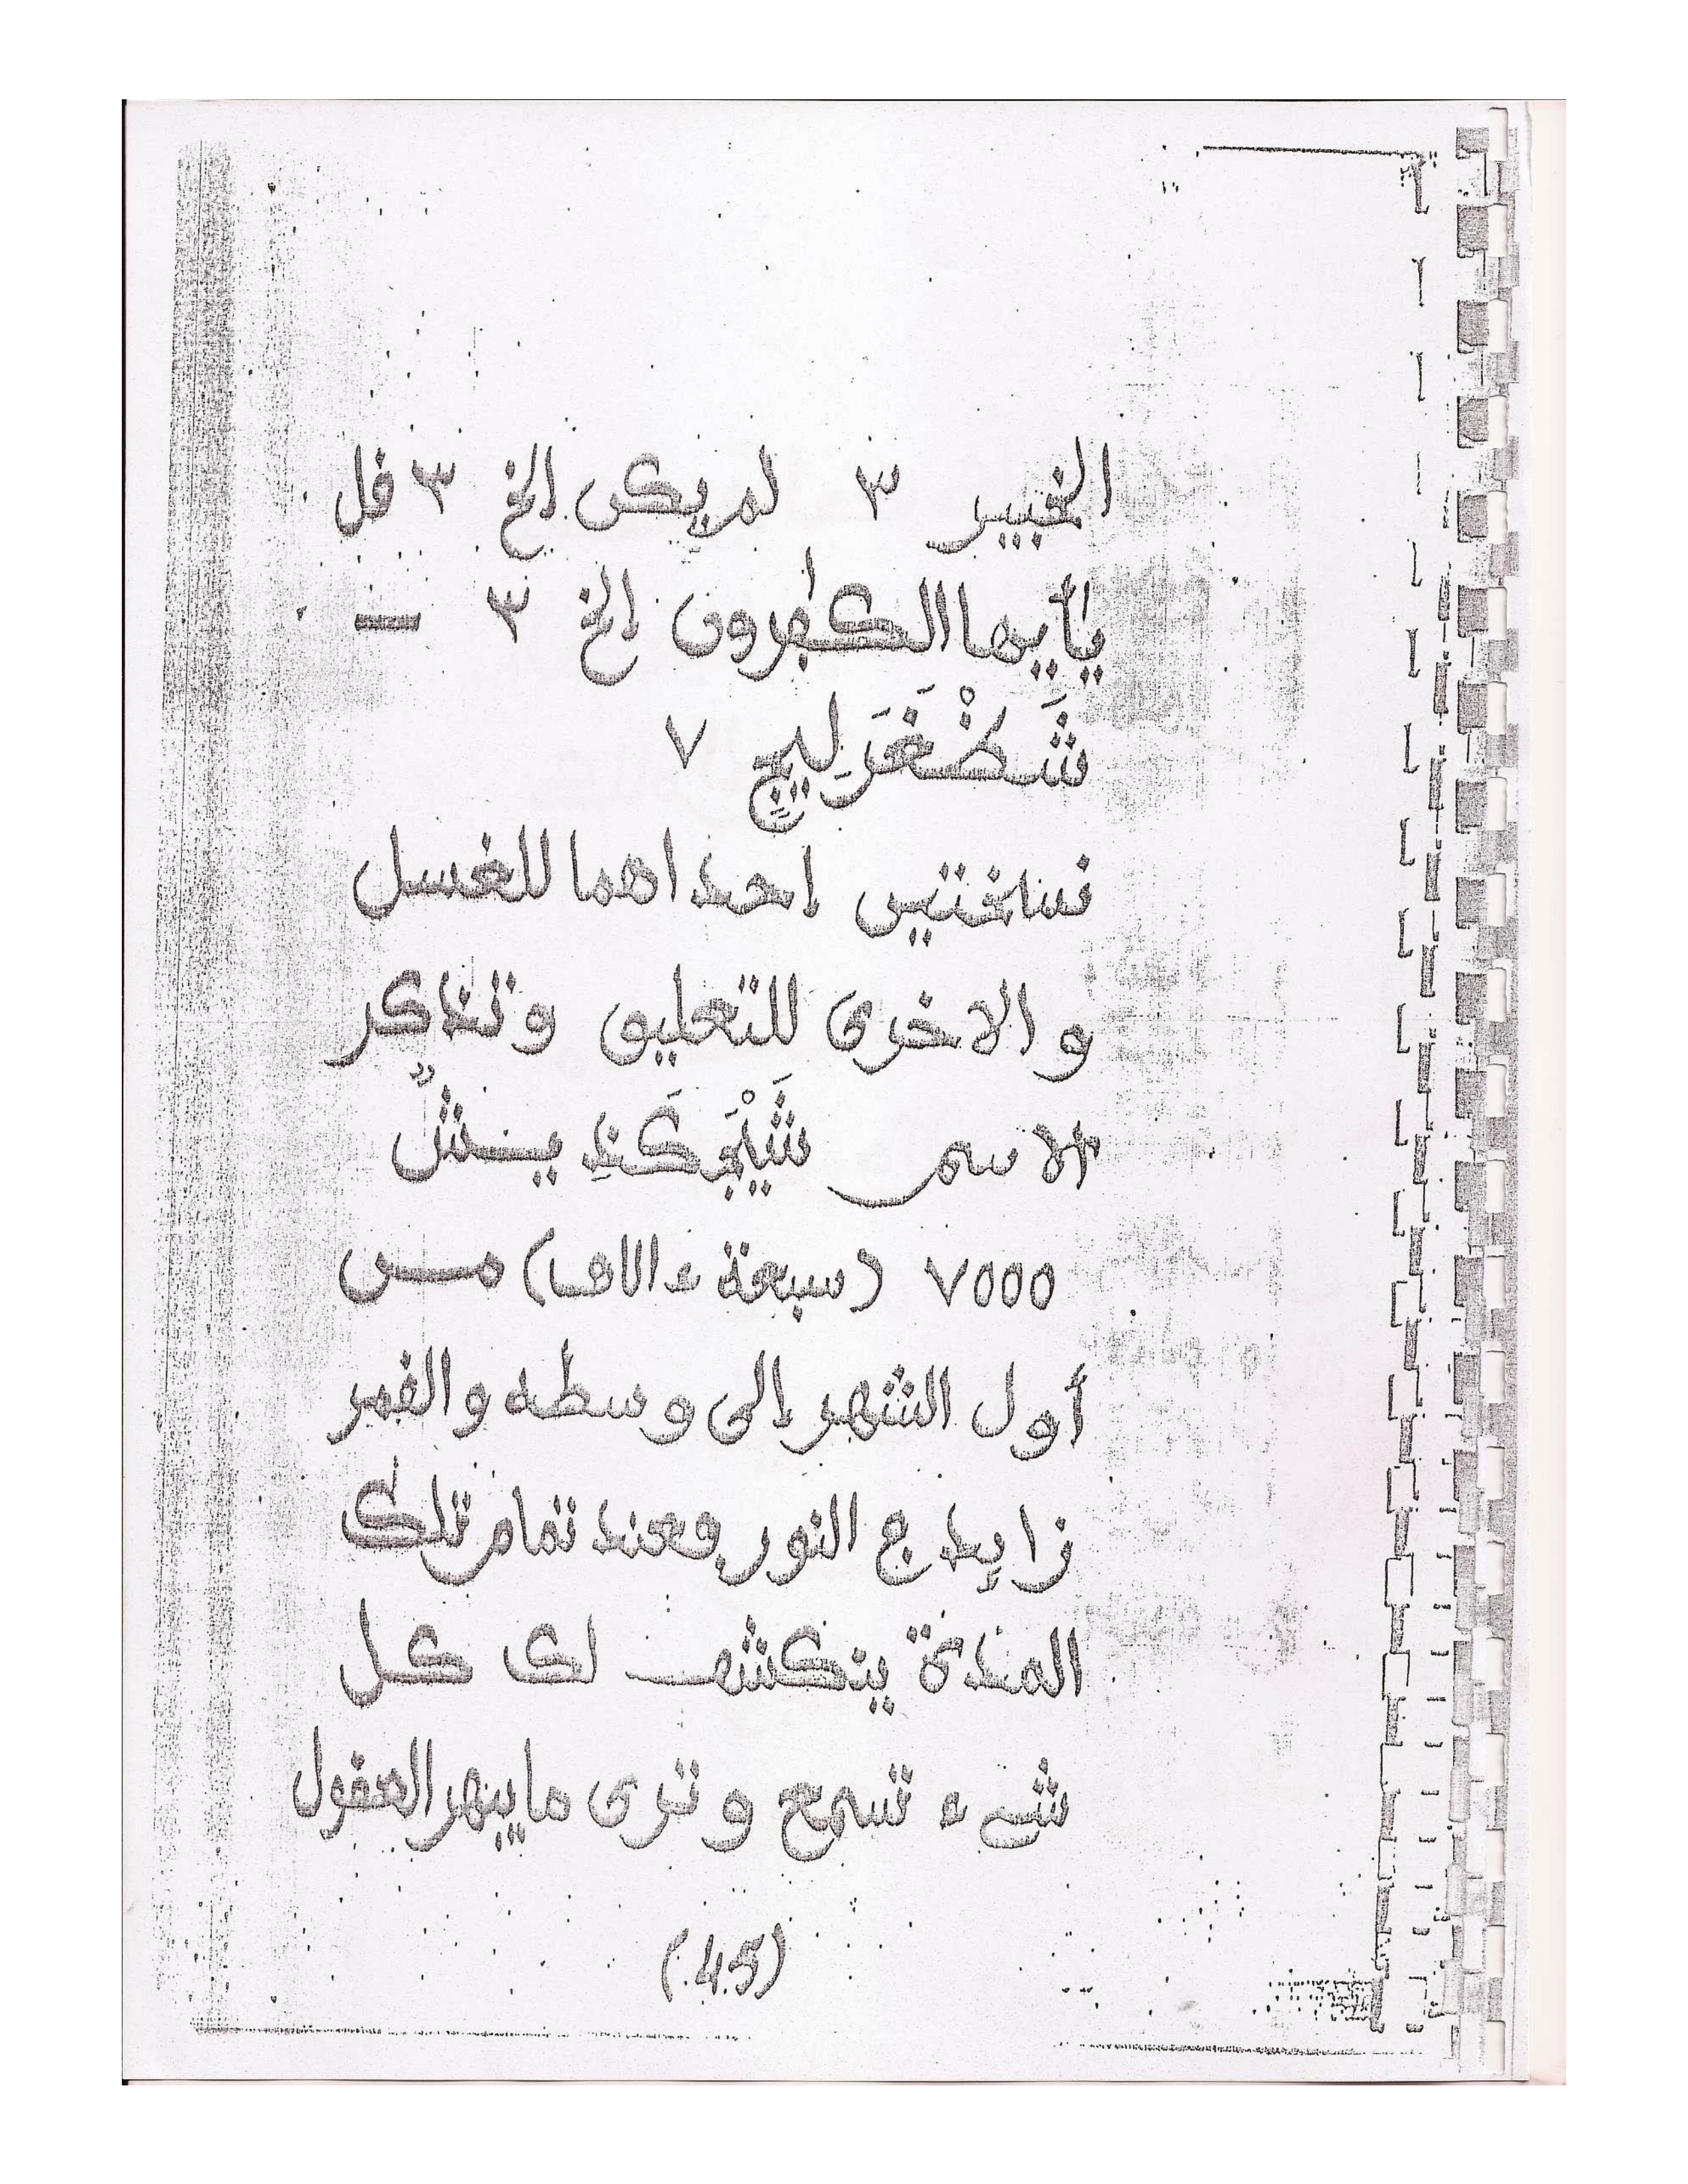 الخبير ٣ لم يكن الخ ٣ فل
يأيها الكٰفرون الخ ٣ —
شَكْضْغَرَلِيجٍ ٧
نسختين إحداهما للغسل
والاخرى للتعليق وتذكر
الاسم شَيْقَرَكَنِدِ يـنـشٌ
٧٥٥٥ (سبعة ءالاف) مـن
أول الشهر إلى وسطه والقمر
زايد ج النور فعند تمام تلك
المدة ينكشف لك كل
شىء تسمع وترى ما يبهر العقول
(45)